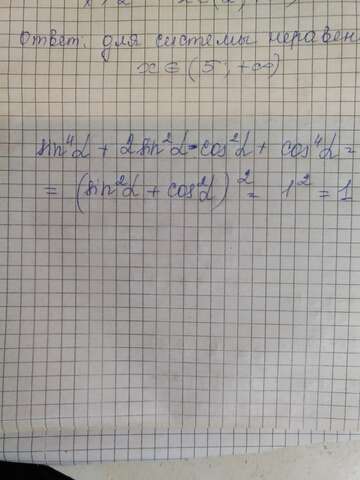 Ответ: для системы неравен
x ∈ (5; +∞)
sin⁴α + 2sin²α·cos²α + cos⁴α =
= (sin²α + cos²α)² = 1² = 1